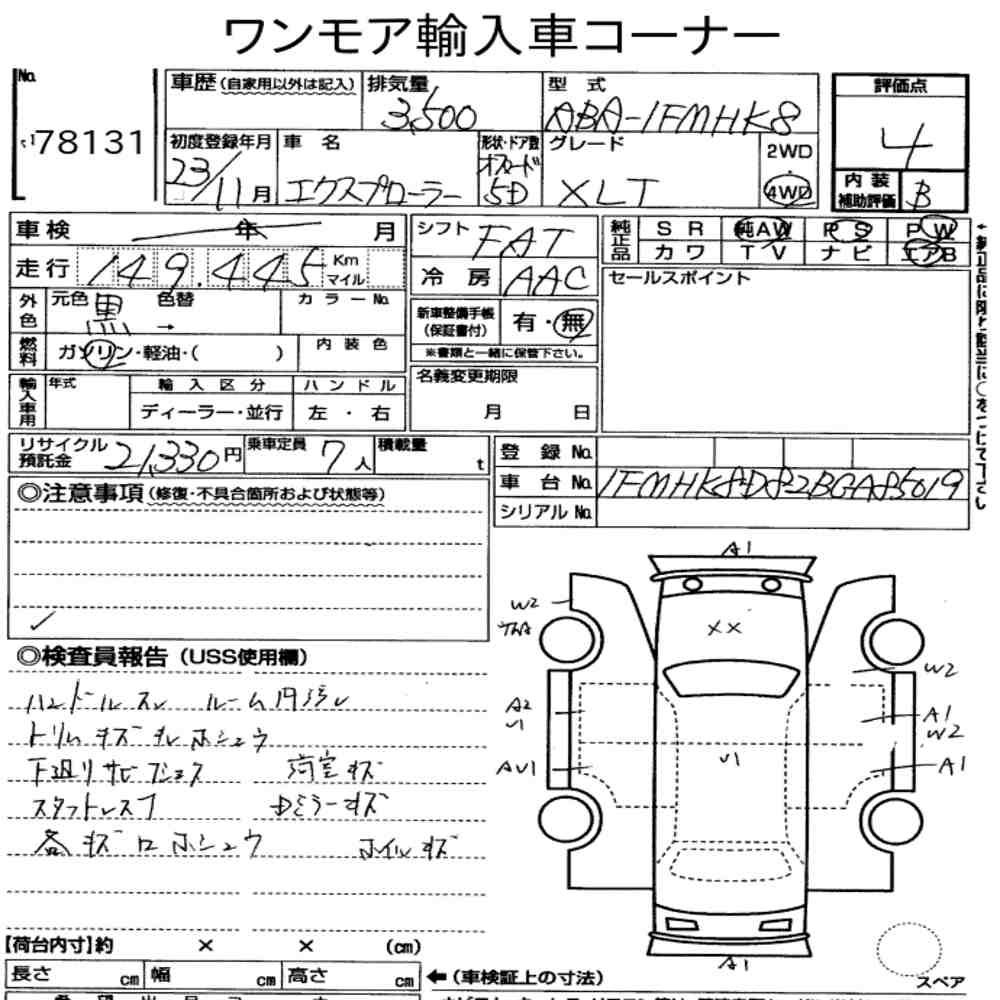 ワンモア輸入車コーナー
No. 78131
車歴 (自家用以外は記入) 排気量 3,500 型式 ABA-1FMHK8
評価点 4
初度登録年月 23/11月 車名 エクスプローラー 形状・ドア数 5D グレード XLT 2WD 4WD
内装補助評価 B
車検 年 月
走行 149,445 Km マイル
シフト FAT
冷房 AAC
純正品 SR 純AW PS PW
カワ TV ナビ エアB
セールスポイント
外色 元色 黒 色替 → カラーNo.
新車整備手帳 (保証書付) 有・無
※書類と一緒に保管下さい。
燃料 ガソリン・軽油・( ) 内装色
輸入車用 年式 輸入区分 ハンドル
ディーラー・並行 左・右
名義変更期限
月 日
リサイクル預託金 21,330円 乗車定員 7人 積載量 t
登録No.
車台No. 1FMHK8D82BGA85019
シリアルNo.
◎注意事項 (修復・不具合箇所および状態等)
✓
◎検査員報告 (USS使用欄)
ハンドルスレ ルーム
トリムキズ ホシュウ
下廻りサビ
スタットレス Dミラーキズ
各キズ ホシュウ ホイルキズ
A1
W2
XX
W2
A2
U1
A1
W2
U1
AU1
A1
A1
スペア
【荷台内寸】約 × × (cm)
長さ cm 幅 cm 高さ cm ←(車検証上の寸法)